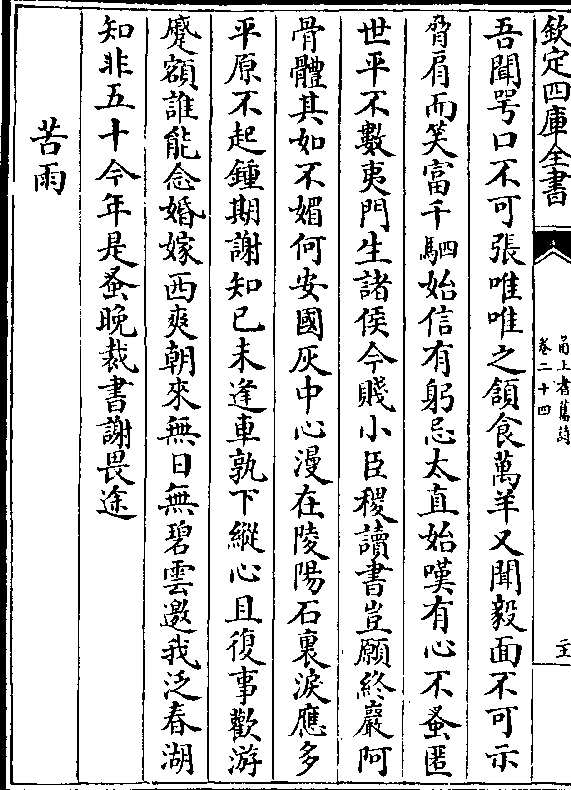 欽定四庫全書
甬上耆舊詩
卷二十四
吾聞咢口不可張唯唯之頷食萬羊又聞毅面不可示
脅肩而笑富千駟始信有躬忌太直始嘆有心不蚤匿
世平不數夷門生諸侯今賤小臣稷讀書豈願終巖阿
骨體其如不媚何安國灰中心漫在陵陽石裏淚應多
平原不起鍾期謝知已未逢車孰下縱心且復事歡游
蹙額誰能念婚嫁西爽朝來無日無碧雲邀我泛春湖
知非五十今年是蚤晚裁書謝畏途
苦雨